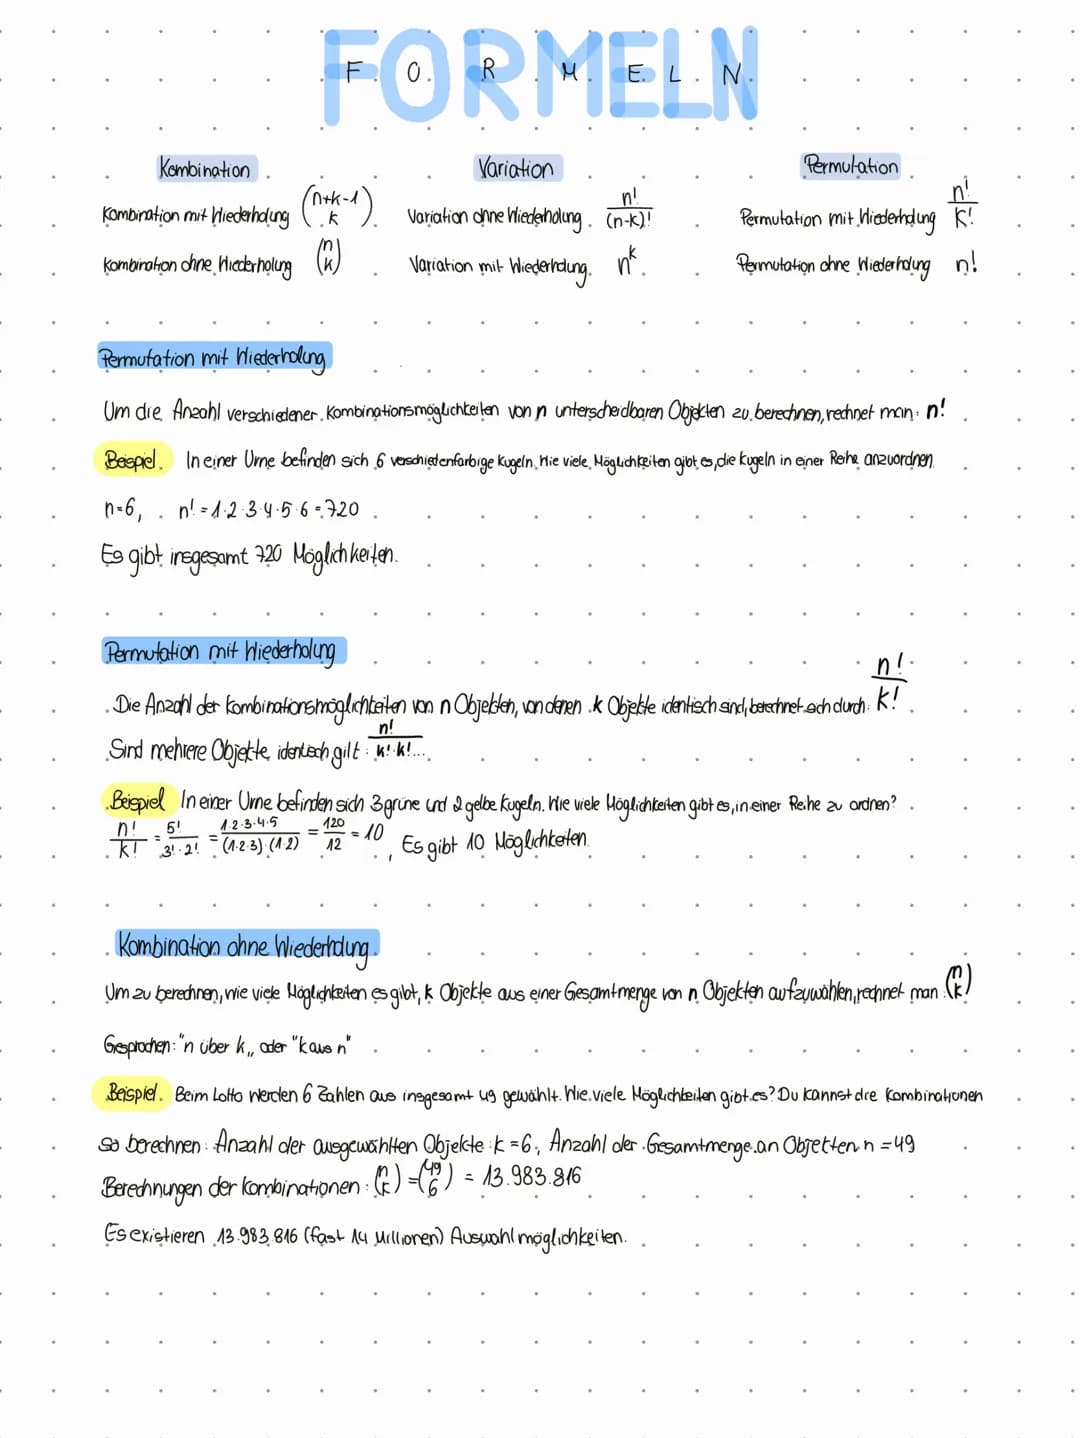 FORMELN
F O R M E L N
Kombination Variation Permutation
Kombination mit Wiederholung (n+k-1 k) Variation ohne Wiederholung n!/(n-k)! Permutation mit Wiederholung n!/k!
Kombination ohne Wiederholung (n k) Variation mit Wiederholung n^k Permutation ohne Wiederholung n!
Permutation mit Wiederholung
Um die Anzahl verschiedener Kombinationsmöglichkeiten von n unterscheidbaren Objekten zu berechnen, rechnet man: n!
Beispiel. In einer Urne befinden sich 6 verschiedenfarbige Kugeln. Wie viele Möglichkeiten gibt es, die Kugeln in einer Reihe anzuordnen.
n=6, n! = 1·2·3·4·5·6 = 720
Es gibt insgesamt 720 Möglichkeiten.
Permutation mit Wiederholung
Die Anzahl der Kombinationsmöglichkeiten von n Objekten, von denen k Objekte identisch sind, berechnet sich durch: n!/k!
Sind mehrere Objekte identisch gilt: n!/k!·k!...
Beispiel In einer Urne befinden sich 3 grüne und 2 gelbe Kugeln. Wie viele Möglichkeiten gibt es, in einer Reihe zu ordnen?
n!/k! = 5!/3!·2! = 1·2·3·4·5/(1·2·3)·(1·2) = 120/12 = 10, Es gibt 10 Möglichkeiten.
Kombination ohne Wiederholung
Um zu berechnen, wie viele Möglichkeiten es gibt, k Objekte aus einer Gesamtmenge von n Objekten aufzuwählen, rechnet man: (n k)
Gesprochen: "n über k„ oder "k aus n"
Beispiel. Beim Lotto werden 6 Zahlen aus insgesamt 49 gewählt. Wie viele Möglichkeiten gibt es? Du kannst die Kombinationen
so berechnen: Anzahl der ausgewählten Objekte: k = 6, Anzahl der Gesamtmenge an Objekten n = 49
Berechnungen der Kombinationen: (n k) = (49 6) = 13.983.816
Es existieren 13.983.816 (fast 14 Millionen) Auswahlmöglichkeiten.